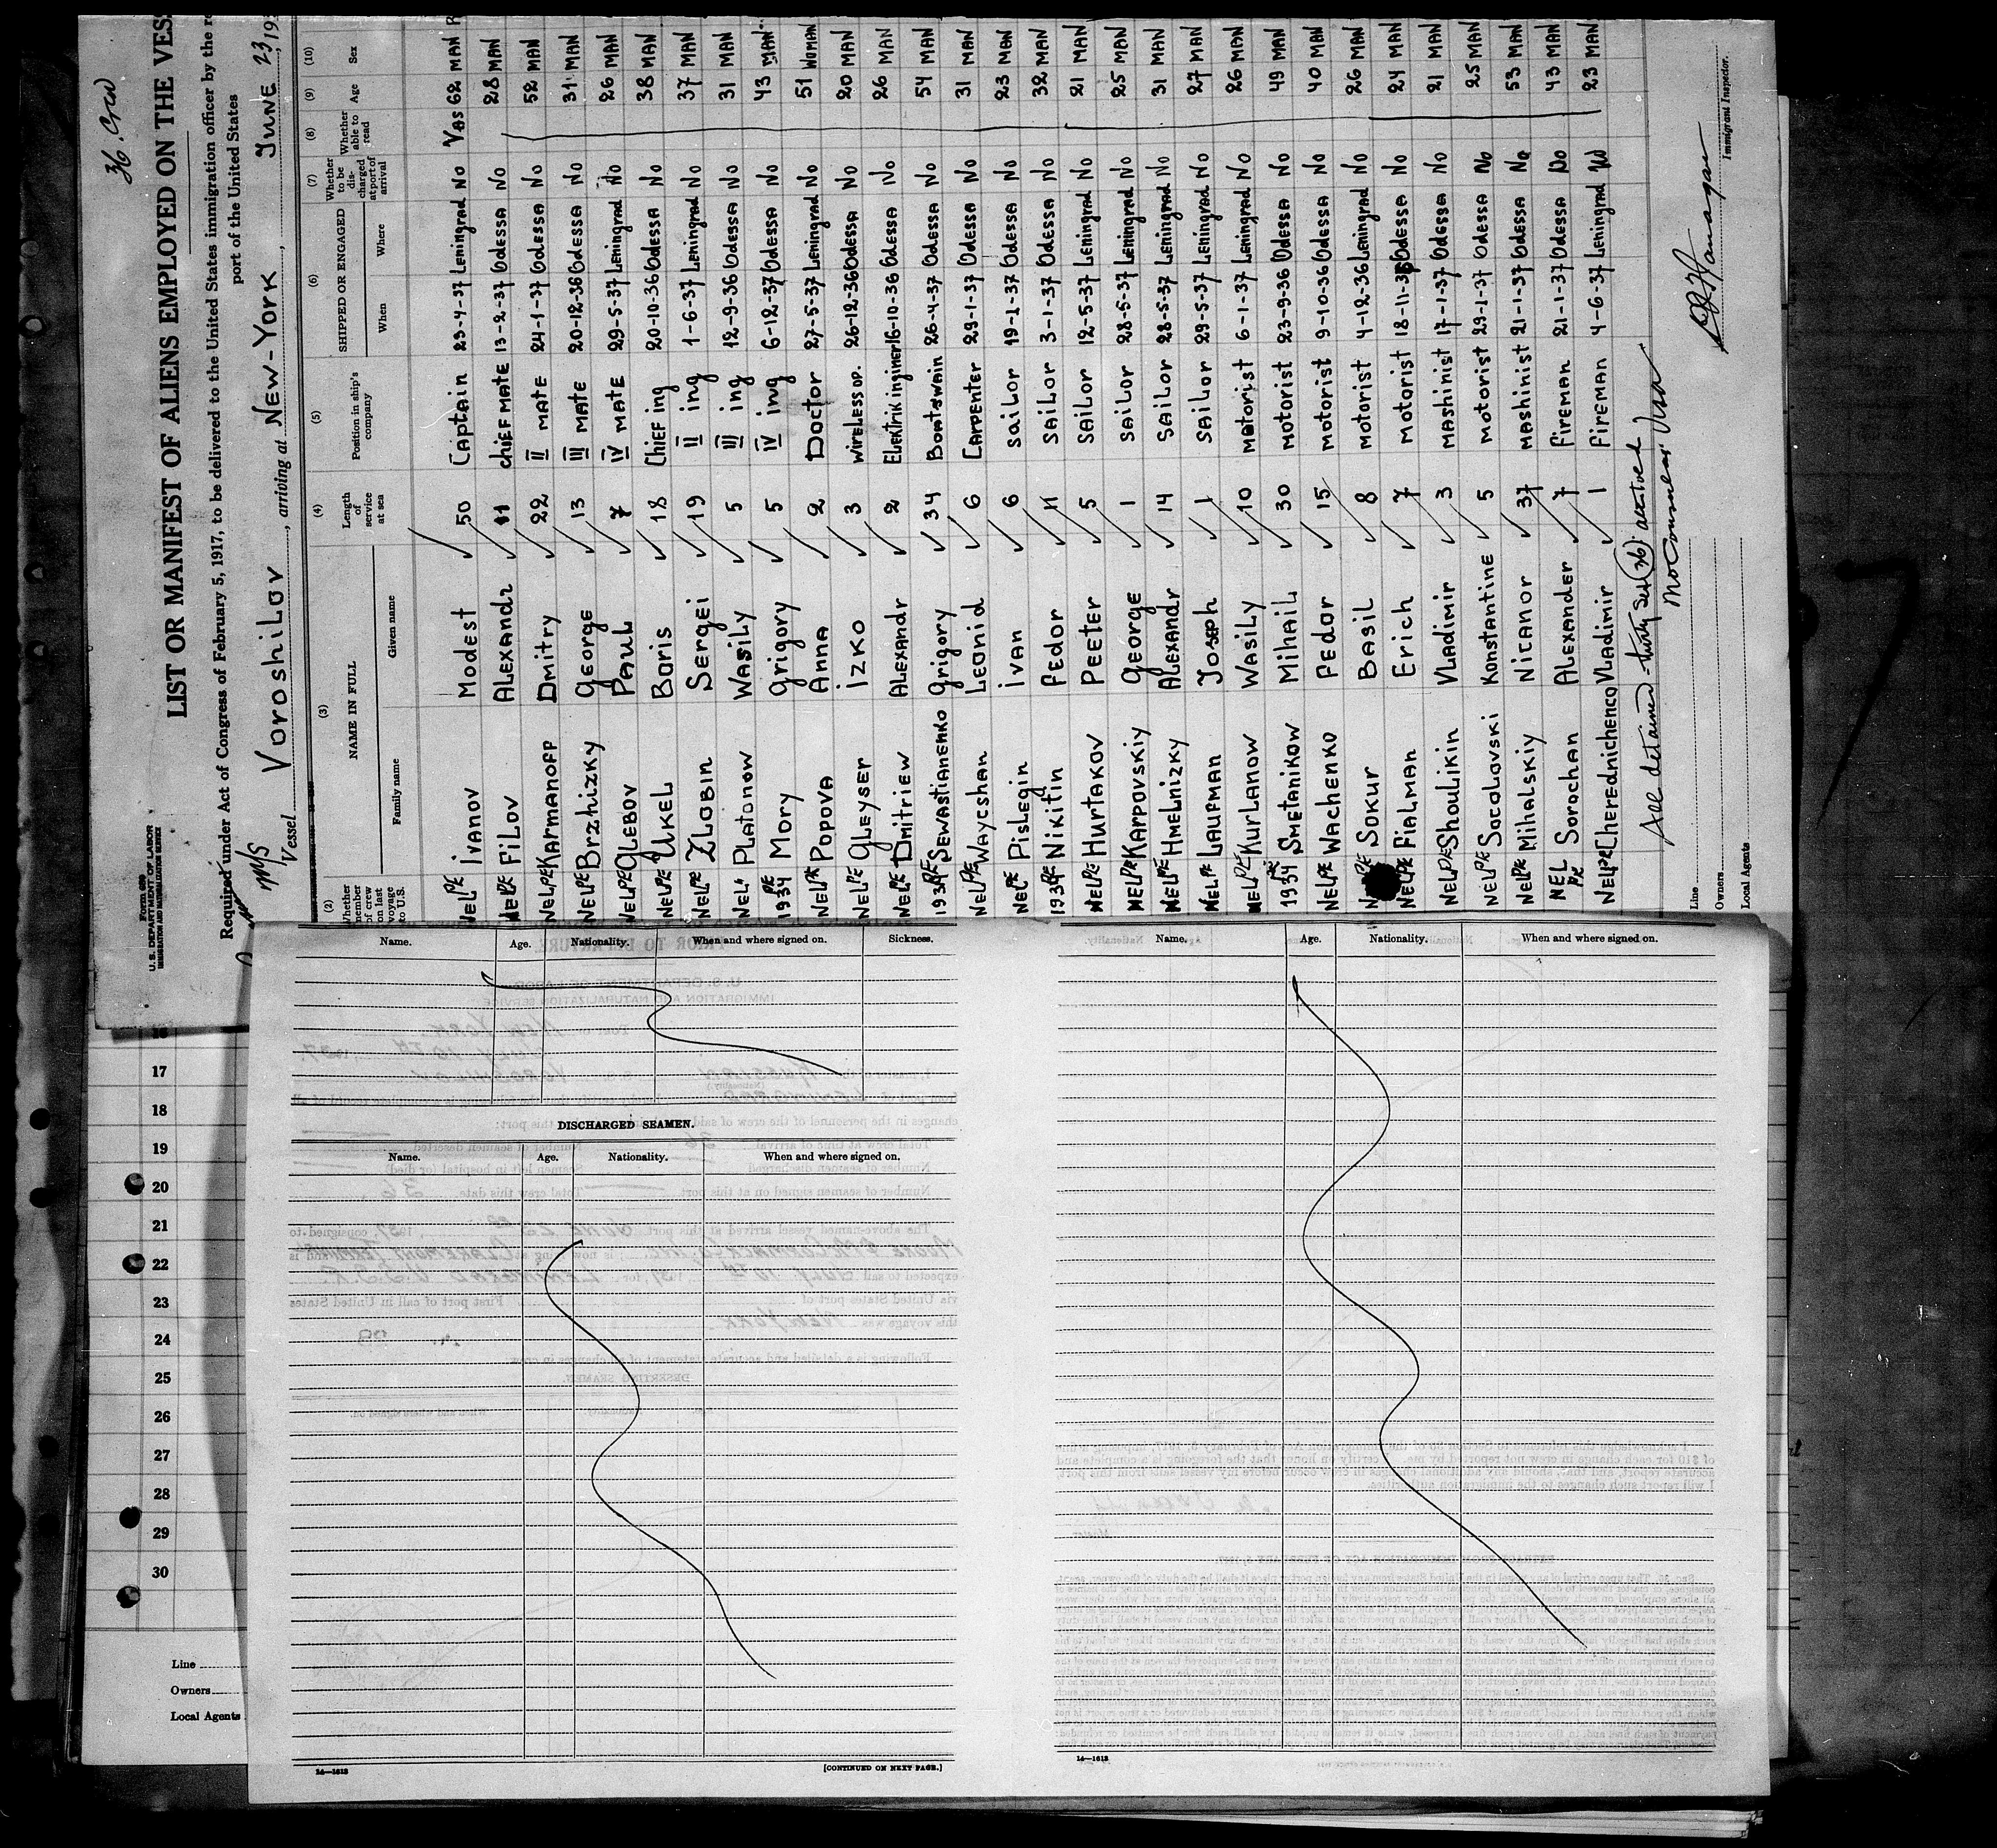 36. Crew
Form 680
U. S. DEPARTMENT OF LABOR
IMMIGRATION AND NATURALIZATION SERVICE
LIST OR MANIFEST OF ALIENS EMPLOYED ON THE VES
Required under Act of Congress of February 5, 1917, to be delivered to the United States immigration officer by the re
port of the United States
M/S
Vessel Voroshilov, arriving at NEW-YORK, JUNE 23, 193
(2) (3) (4) (5) (6) (7) (8) (9) (10)
Whether member of crew on last voyage to U.S. NAME IN FULL Family name Given name Length of service at sea Position in ship's company SHIPPED OR ENGAGED When Where Whether to be discharged at port of arrival Whether able to read Age Sex
NEL PE Ivanov Modest 50 Captain 23-4-37 Leningrad No Yes 62 MAN
NEL PE Filov Alexandr 11 chief MATE 13-2-37 Odessa No 28 MAN
NEL PE Karmanoff Dmitry 22 II MATE 24-1-37 Odessa No 52 MAN
NEL PE Brzhizky George 13 III MATE 20-12-36 Odessa No 31 MAN
NEL PE Glebov Paul 7 IV MATE 29-5-37 Leningrad No 26 MAN
NEL PE Ukel Boris 18 Chief ing 20-10-36 Odessa No 38 MAN
NEL PE Zlobin Sergei 19 II ing 1-6-37 Leningrad No 37 MAN
NEL Platonow Wasily 5 III ing 12-9-36 Odessa No 31 MAN
1934 PE Mory Grigory 5 IV ing 6-12-37 Odessa No 43 MAN
NEL PE Popova Anna 2 Doctor 27-5-37 Leningrad No 51 WOMAN
NEL PE Gleyser Izko 3 Wireless op. 26-12-36 Odessa No 20 MAN
NEL PE Dmitriew Alexandr 2 Elektrik inginer 16-10-36 Odessa No 26 MAN
1934 PE Sewastianenko Grigory 34 Boatswain 26-4-37 Odessa No 54 MAN
NEL PE Waycshan Leonid 6 Carpenter 29-1-37 Odessa No 31 MAN
NEL PE Pislegin Ivan 6 Sailor 19-1-37 Odessa No 23 MAN
1934 PE Nikitin Fedor 11 Sailor 3-1-37 Odessa No 32 MAN
NEL PE Hurtakov Peeter 5 Sailor 12-5-37 Leningrad No 21 MAN
NEL PE Karpovskiy George 1 Sailor 28-5-37 Leningrad No 25 MAN
NEL PE Hmelnizky Alexandr 14 Sailor 28-5-37 Leningrad No 31 MAN
NEL PE Laufman Joseph 1 Sailor 29-5-37 Leningrad No 27 MAN
NEL PE Kurlanow Wasily 10 Motorist 6-1-37 Leningrad No 26 MAN
1934 PE Smetanikow Mihail 30 Motorist 23-9-36 Odessa No 49 MAN
NEL PE Wachenko Fedor 15 Motorist 9-10-36 Odessa No 40 MAN
PE Sokur Basil 8 Motorist 4-12-36 Leningrad No 26 MAN
NEL PE Fialman Erich 7 Motorist 18-11-36 Odessa No 24 MAN
NEL PE Shoulikin Vladimir 3 Mashinist 17-1-37 Odessa No 21 MAN
NEL PE Socolovski Konstantine 5 Motorist 29-1-37 Odessa No 25 MAN
NEL PE Mihalskiy Nicanor 37 Mashinist 21-1-37 Odessa No 53 MAN
NEL PE Sorochan Alexander 7 Fireman 21-1-37 Odessa No 43 MAN
NEL PE Cherednichenco Vladimir 1 Fireman 4-6-37 Leningrad No 23 MAN
All detained thirty six (36)
Line
Owners
Local Agents
Immigrant Inspector.
Name. Age. Nationality. When and where signed on. Sickness.
DISCHARGED SEAMEN.
Name. Age. Nationality. When and where signed on.
16—1613
[CONTINUED ON NEXT PAGE.]
Name. Age. Nationality. When and where signed on.
16—1613
16
17
18
19
20
21
22
23
24
25
26
27
28
29
30
Line
Owners
Local Agents